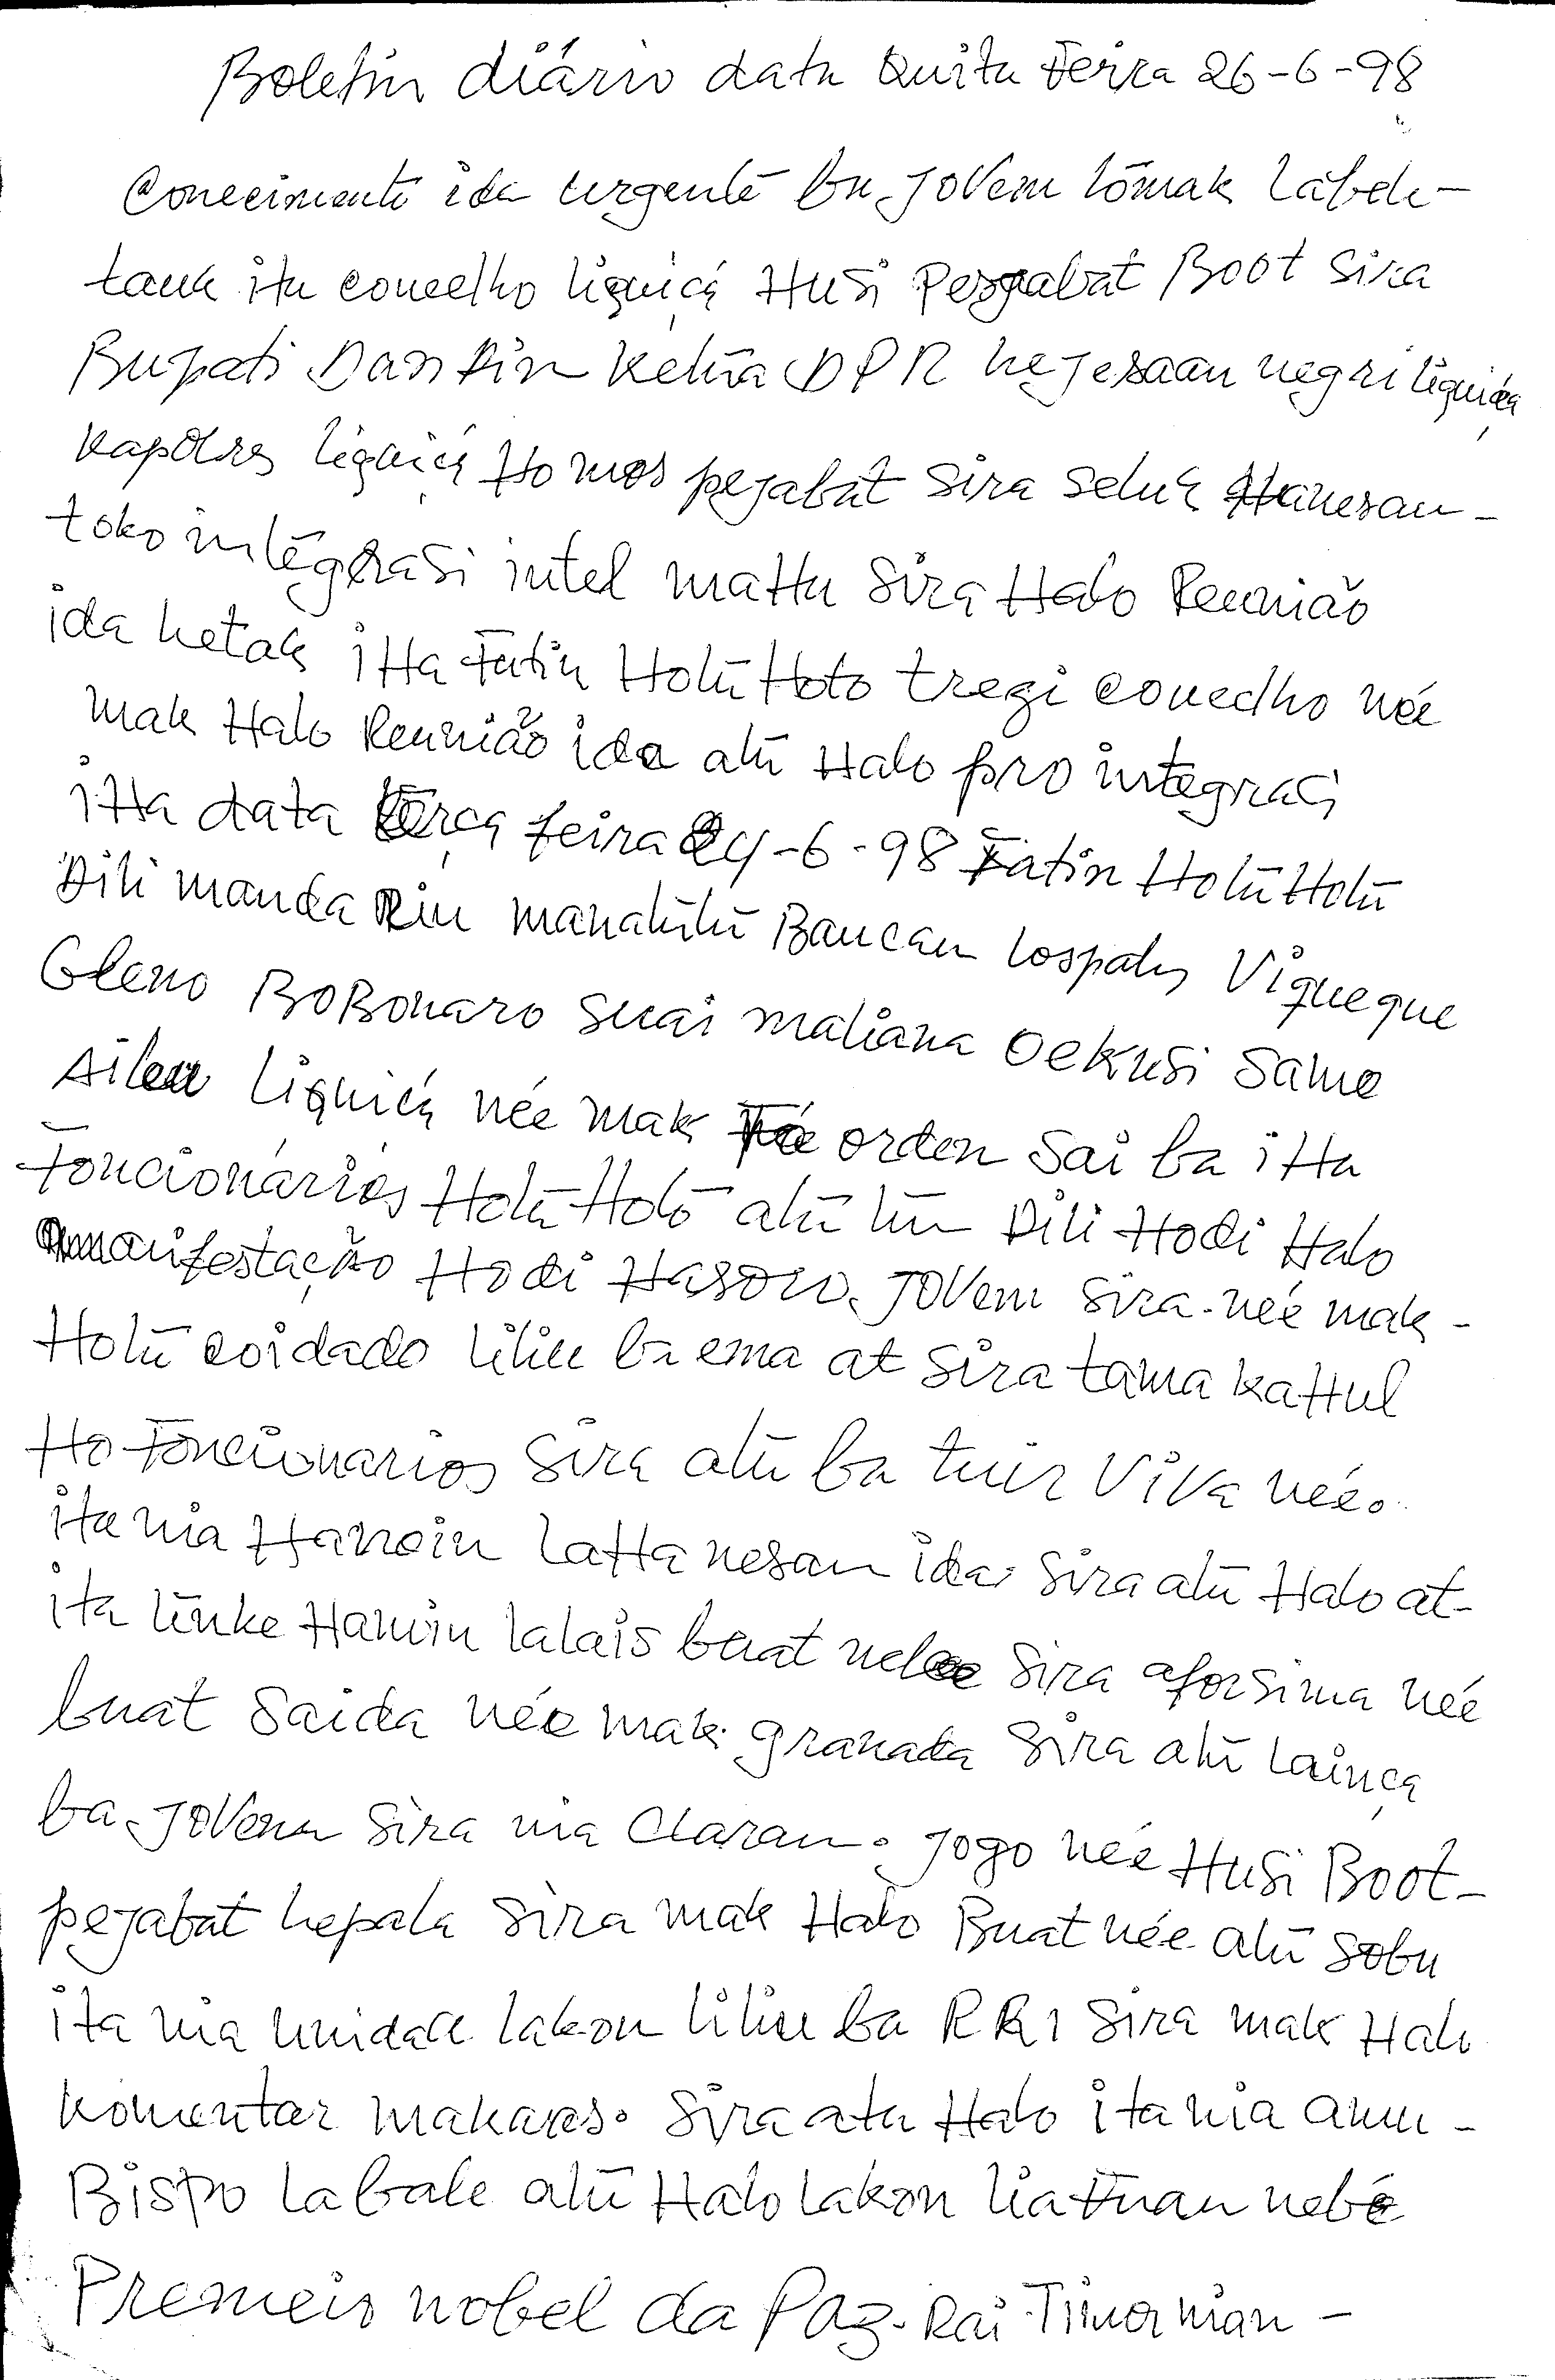 Boletin diário data Quita Feira 26-6-98
Conecimento ida urgente ba Jovem tõmak labele-
tauk ita concelho liquiçá Husi Pejabat Boot sira
Bupati Dandin Ketua DPR kejesaan negri liquiça
Kapolres liquiçá Ho mos pejabat sira seluk Hanesan-
toko integrasi intel mattu sira Halo Reunião
ida ketak iHa Fatin Hotū Hoto tregi concelho neé
mak Halo Reunião ida atū Halo pro integrasi
iHa data terça feira 24-6-98 Fatin Hotū Hotū
Dili mandaRin manatūtū Baucau lospalos Viqueque
Gleno BoBonaro Suai maliana Oekusi Same
Aileu liquiçá neé mak Fó orden sai ba iHa
Foncionários Hotū Hotō atū tūn Dili Hodi Halo
manifestação Hodi Hasoru Jovem sira neé mak-
Hotū coidado liliu ba ema at sira tama kaHul
Ho Foncionarios sira atū ba tuir Viva neé.
ita nia Hanoin laHanesan ida sira atū Halo at-
ita tūnke Hanoin lalais buat nebee sira aforsima neé
buat saida neé mak granada sira atū lainça
ba Jovem sira nia claran. Jogo neé Husi Boot-
pejabat kepala sira mak Halo Buat neé atū sobu
ita nia unidade lakon liliu ba RRI sira mak Halo
komentar makaas. sira atu Halo ita nia amu-
Bispo labale atū Halo lakon lia Fuan nebé
Premeio nobel da Paz. Rai Timor nian-